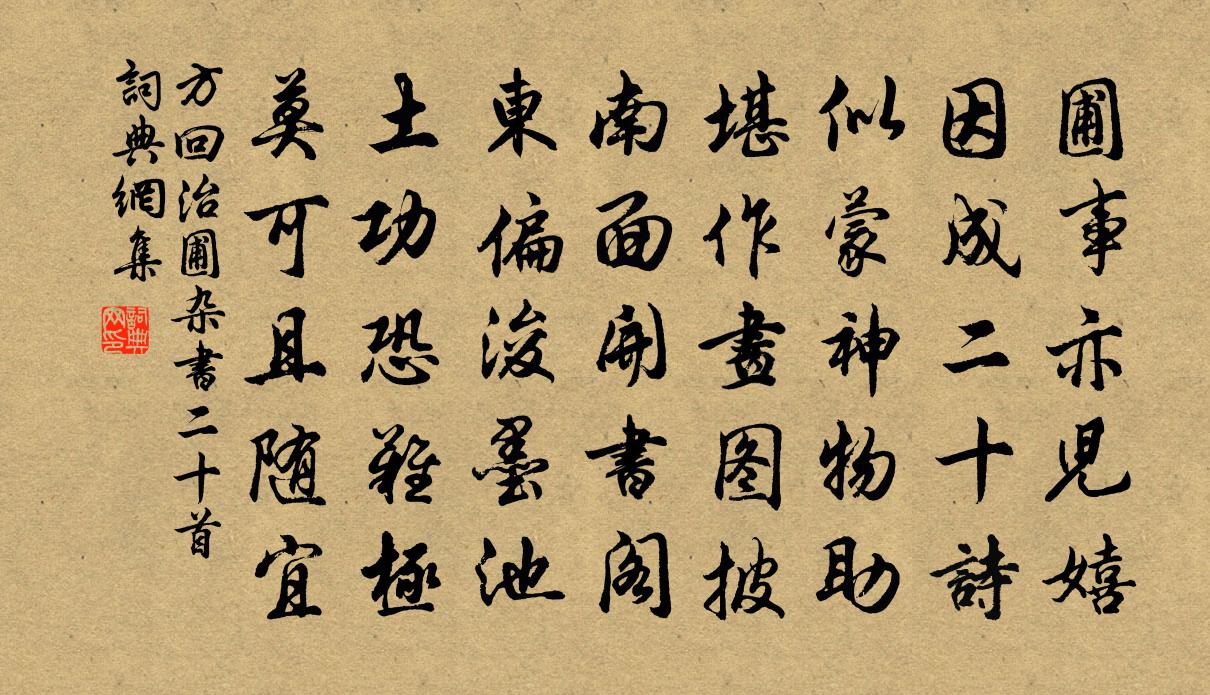 圃事亦児嬉
因成二十詩
似蒙神物助
堪作畫图披
南面開書阁
東偏浚墨池
土功恐難極
莫可且随宜
方回治圃杂書二十首
詞典網集
詞典网印